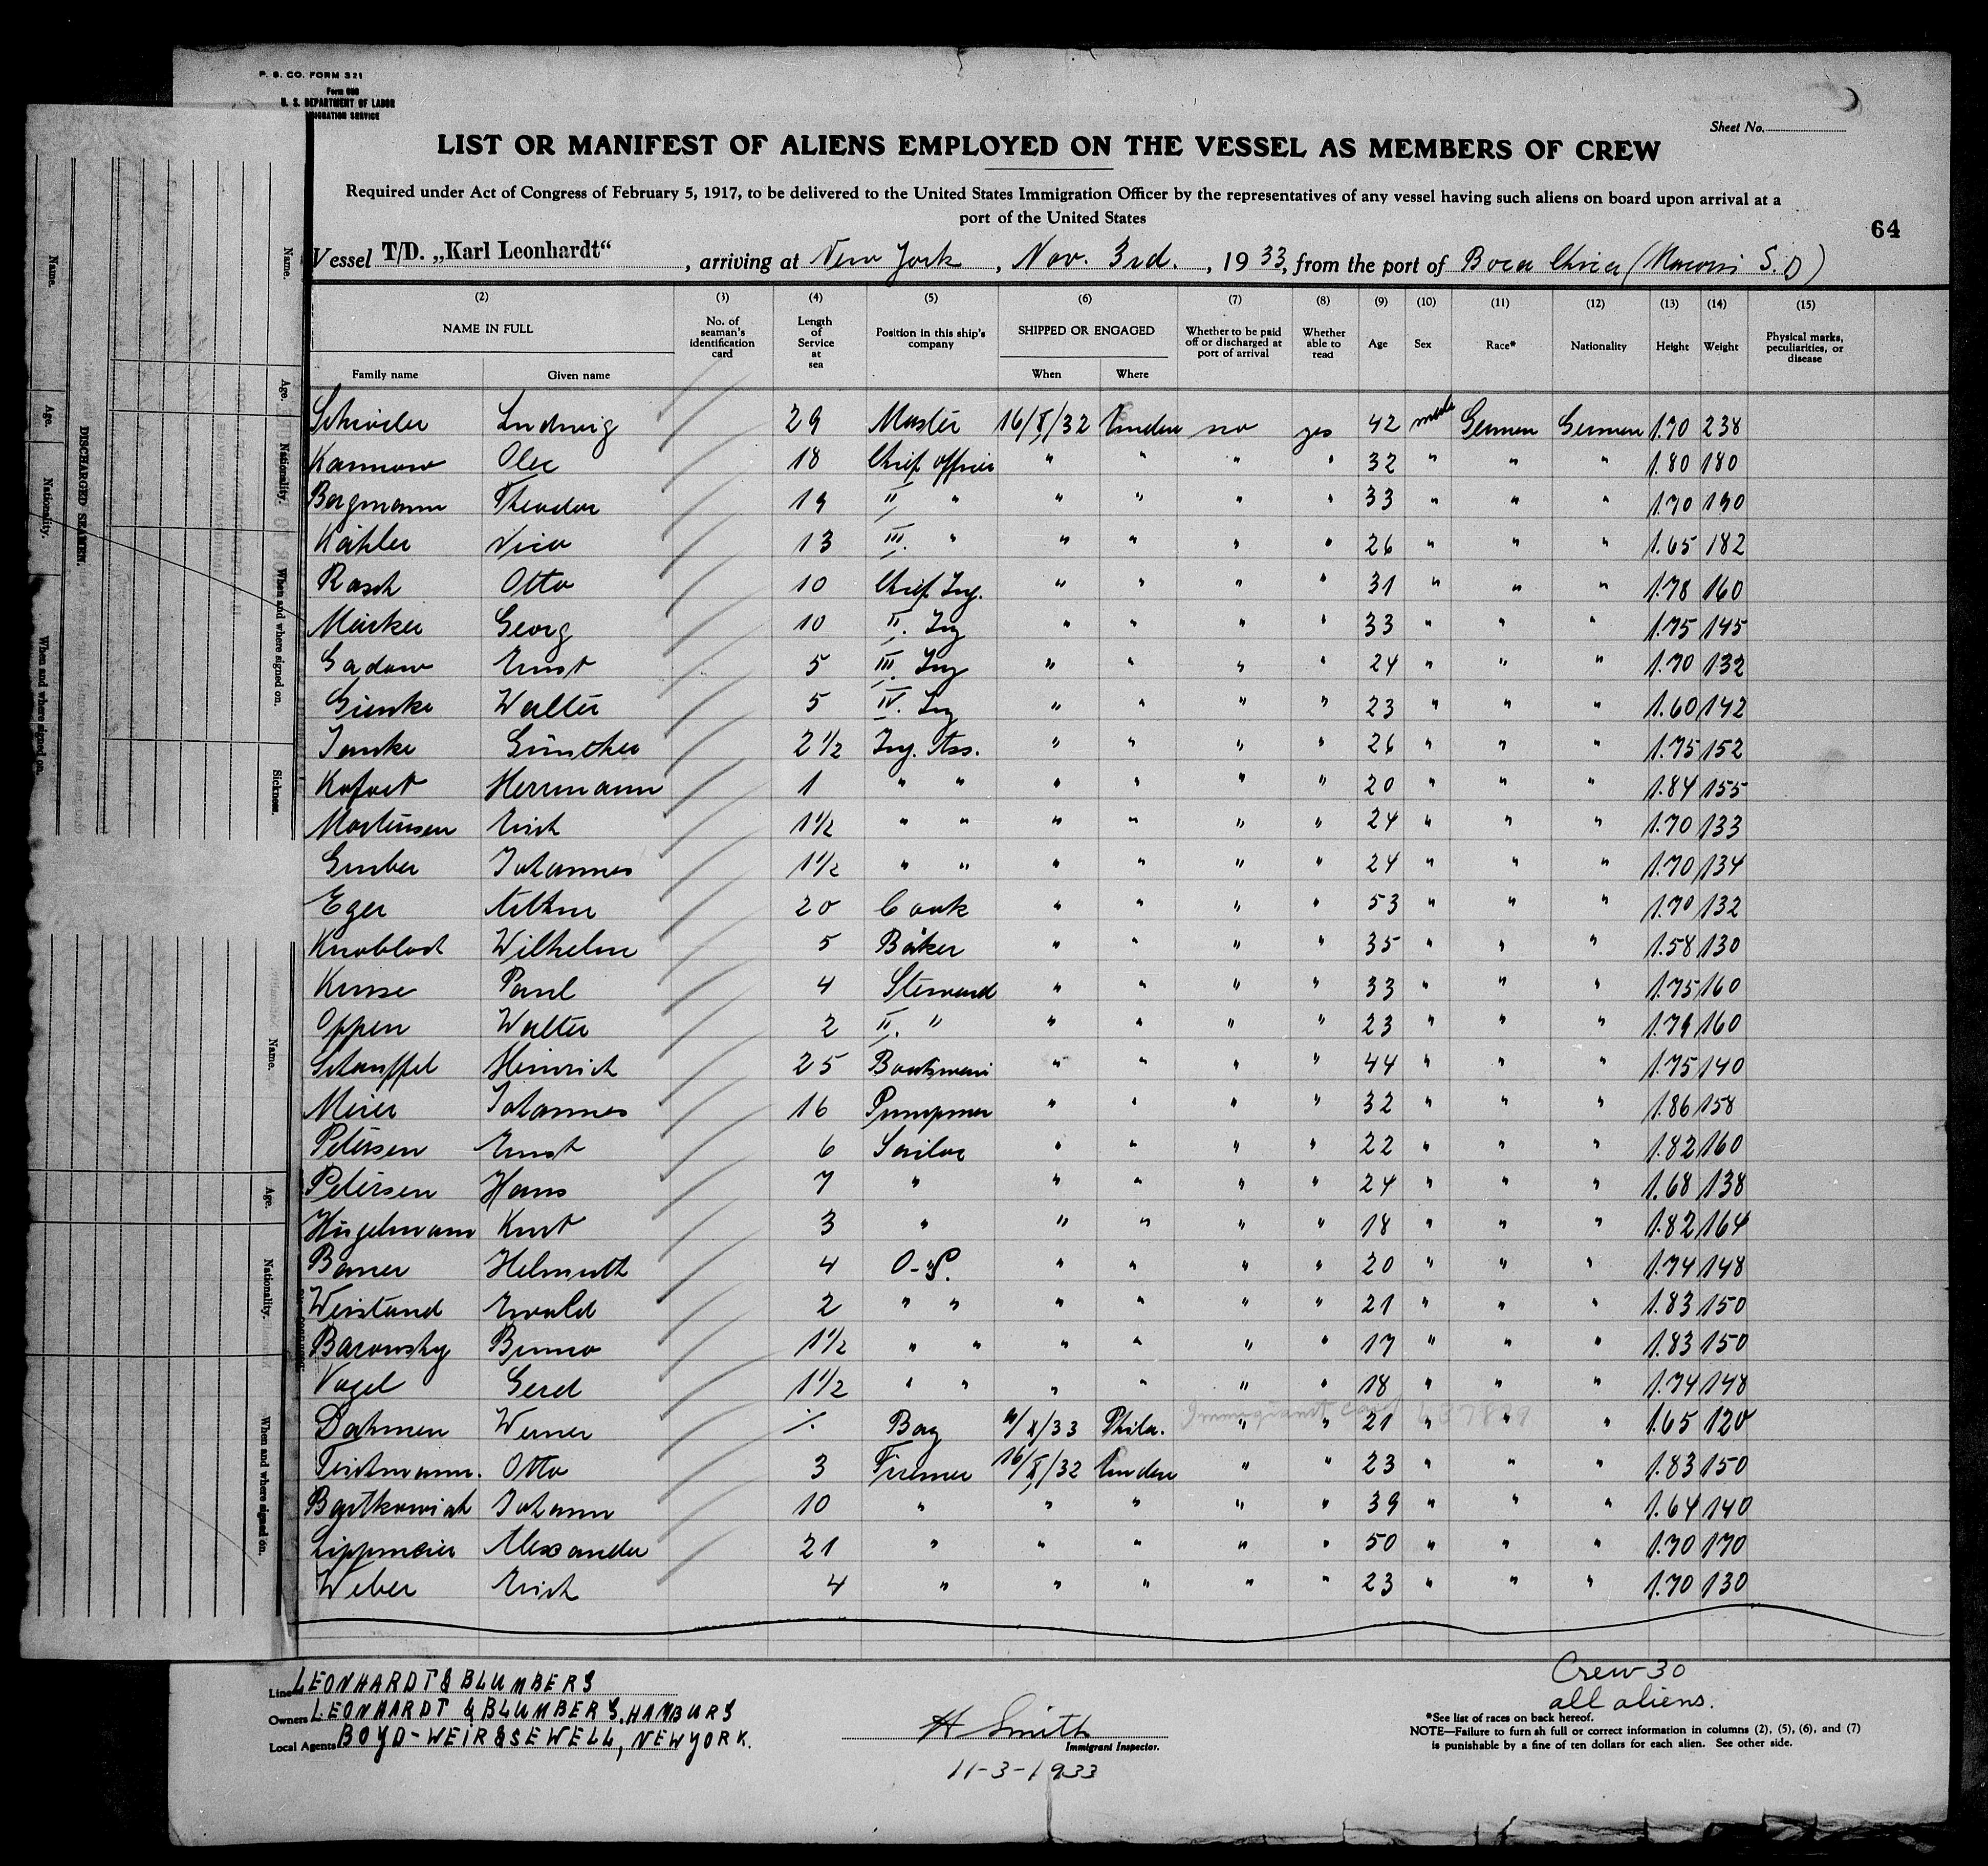 P. S. CO. FORM 321
Form 680
U. S. DEPARTMENT OF LABOR
IMMIGRATION SERVICE
Sheet No.
LIST OR MANIFEST OF ALIENS EMPLOYED ON THE VESSEL AS MEMBERS OF CREW
Required under Act of Congress of February 5, 1917, to be delivered to the United States Immigration Officer by the representatives of any vessel having such aliens on board upon arrival at a
port of the United States
64
Vessel T/D. „Karl Leonhardt“, arriving at New York, Nov. 3rd., 1933, from the port of Boca Chica (Macoris S. D)
(2) (3) (4) (5) (6) (7) (8) (9) (10) (11) (12) (13) (14) (15)
NAME IN FULL No. of seaman's identification card Length of Service at sea Position in this ship's company SHIPPED OR ENGAGED Whether to be paid off or discharged at port of arrival Whether able to read Age Sex Race* Nationality Height Weight Physical marks, peculiarities, or disease
Family name Given name When Where
Ludwig 29 Master 16/X/32 Emden no yes 42 male German German 1.70 238
Kannow 18 Chief officer " " " " 32 " " " 1.80 180
Bergmann Theodor 19 II " " " " " 33 " " " 1.70 190
Kähler Nico 13 III. " " " " " 26 " " " 1.65 182
Rasch Otto 10 Chief Ing. " " " " 31 " " " 1.78 160
Georg 10 II. Ing " " " " 33 " " " 1.75 145
Gadow Ernst 5 III. Ing " " " " 24 " " " 1.70 132
Gienke Walter 5 IV. Ing " " " " 23 " " " 1.60 142
Janke Günther 2 1/2 Ing. Ass. " " " " 26 " " " 1.75 152
Herrmann 1 " " " " " " 20 " " " 1.84 155
Mortensen Erich 1 1/2 " " " " " " 24 " " " 1.70 133
Gruber Johannes 1 1/2 " " " " " " 24 " " " 1.70 134
Eger Arthur 20 Cook " " " " 53 " " " 1.70 132
Knobloch Wilhelm 5 Bäker " " " " 35 " " " 1.58 130
Kruse Paul 4 Steward " " " " 33 " " " 1.75 160
Oppen Walter 2 II. " " " " " 23 " " " 1.79 160
Schauffel Heinrich 25 " " " " 44 " " " 1.75 140
Meier Johannes 16 Pumpman " " " " 32 " " " 1.86 158
Petersen Ernst 6 Sailor " " " " 22 " " " 1.82 160
Petersen Hans 7 " " " " " 24 " " " 1.68 138
Hügelmann Kurt 3 " " " " " 18 " " " 1.82 164
Bauer Helmuth 4 O-S. " " " " 20 " " " 1.74 148
Ewald 2 " " " " " " 21 " " " 1.83 150
Barowsky Bruno 1 1/2 " " " " " " 17 " " " 1.83 150
Vogel Gerd 1 1/2 " " " " " " 18 " " " 1.74 148
Dahmen Werner ./. Boy /X/33 Phila. " " 21 " " " 1.65 120
Immigrant card
Tischmann. Otto 3 Firemer 16/X/32 Emden " " 23 " " " 1.83 150
Bartkowiak Johann 10 " " " " " 39 " " " 1.64 140
Lippmeier Alexander 21 " " " " " 50 " " " 1.70 170
Weber Erich 4 " " " " " 23 " " " 1.70 130
Line LEONHARDT & BLUMBERG
Owners LEONHARDT & BLUMBERG, HAMBURG
Local Agents BOYD-WEIR & SEWELL, NEW YORK.
H Smith
Immigrant Inspector.
11-3-1933
Crew 30
all aliens.
*See list of races on back hereof.
NOTE—Failure to furnish full or correct information in columns (2), (5), (6), and (7)
is punishable by a fine of ten dollars for each alien. See other side.
DISCHARGED SEAMEN.
Name. Age. Nationality. When and where signed on.
Name. Age. Nationality. When and where signed on. Sickness.
Name. Age. Nationality. When and where signed on.